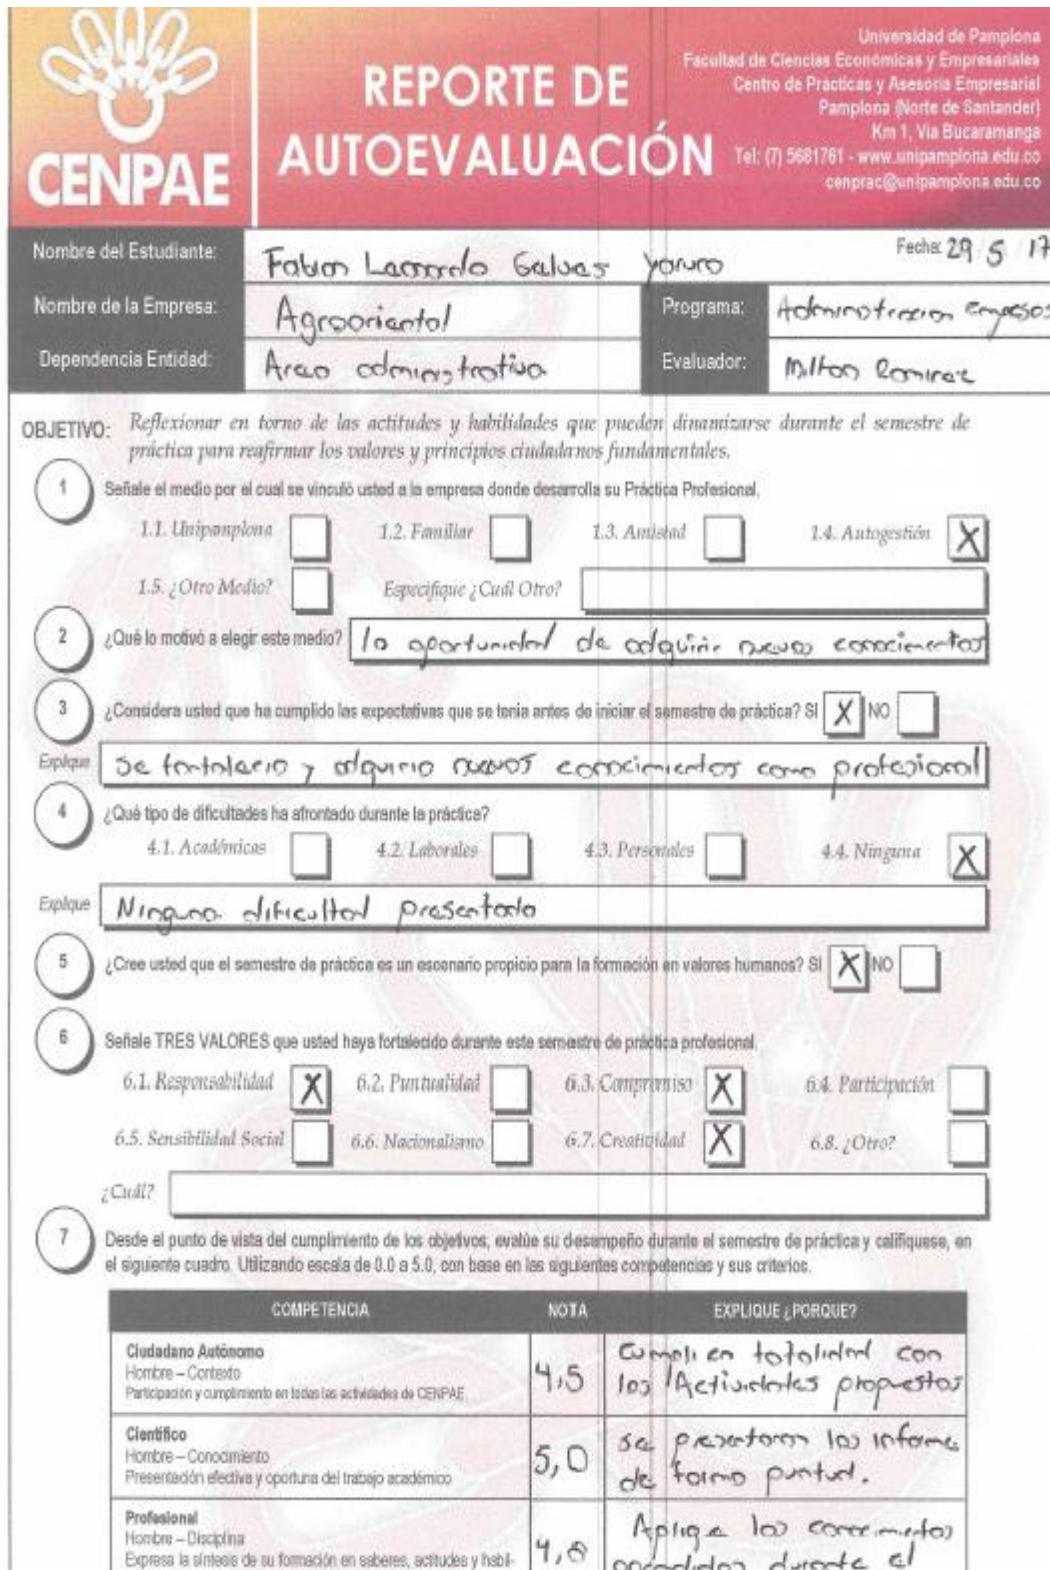 CENPAE
REPORTE DE
AUTOEVALUACIÓN
Universidad de Pamplona
Facultad de Ciencias Económicas y Empresariales
Centro de Prácticas y Asesoria Empresarial
Pamplona (Norte de Santander)
Km 1, Via Bucaramanga
Tel: (7) 5681761 - www.unipamplona.edu.co
cenprac@unipamplona.edu.co
Nombre del Estudiante: Fabian Leonardo Galvas Yaruro Fecha: 29 / 5 / 17
Nombre de la Empresa: Agrooriental Programa: Administracion Empresas
Dependencia Entidad: Area administrativa Evaluador: Milton Ramirez
OBJETIVO: Reflexionar en torno de las actitudes y habilidades que pueden dinamizarse durante el semestre de
práctica para reafirmar los valores y principios ciudadanos fundamentales.
1 Señale el medio por el cual se vinculó usted a la empresa donde desarrolla su Práctica Profesional.
1.1. Unipamplona 1.2. Familiar 1.3. Amistad 1.4. Autogestión X
1.5. ¿Otro Medio? Especifique ¿Cuál Otro?
2 ¿Qué lo motivó a elegir este medio? la oportunidad de adquirir nuevos conocimientos
3 ¿Considera usted que ha cumplido las expectativas que se tenia antes de iniciar el semestre de práctica? SI X NO
Explique Se fortalecio y adquirio nuevos conocimientos como profesional
4 ¿Qué tipo de dificultades ha afrontado durante la práctica?
4.1. Académicas 4.2. Laborales 4.3. Personales 4.4. Ninguna X
Explique Ninguna dificultad presentada
5 ¿Cree usted que el semestre de práctica es un escenario propicio para la formación en valores humanos? SI X NO
6 Señale TRES VALORES que usted haya fortalecido durante este semestre de práctica profesional.
6.1. Responsabilidad X 6.2. Puntualidad 6.3. Compromiso X 6.4. Participación
6.5. Sensibilidad Social 6.6. Nacionalismo 6.7. Creatividad X 6.8. ¿Otro?
¿Cuál?
7 Desde el punto de vista del cumplimiento de los objetivos, evalúe su desempeño durante el semestre de práctica y califíquese, en
el siguiente cuadro. Utilizando escala de 0.0 a 5.0, con base en las siguientes competencias y sus criterios.
COMPETENCIA NOTA EXPLIQUE ¿PORQUE?
Ciudadano Autónomo
Hombre – Contexto
Participación y cumplimiento en todas las actividades de CENPAE.
4,5
Cumpli en totalidad con
las Actividades propuestas
Científico
Hombre – Conocimiento
Presentación efectiva y oportuna del trabajo académico
5,0
se presentaron los informe
de forma puntual.
Profesional
Hombre – Disciplina
Expresa la síntesis de su formación en saberes, actitudes y habil-
4,8
Aplique los conocimientos
durante el